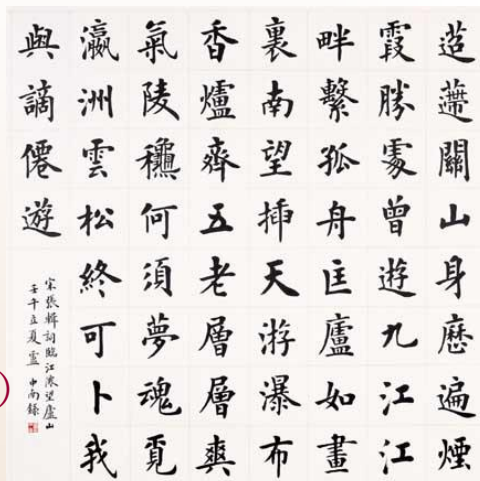 迢遰關山身歷遍煙
霞勝處曾遊九江江
畔繫孤舟匡廬如畫
裏南望插天游瀑布
香爐齊五老層層爽
氣陵龝何須夢魂覓
瀛洲雲松終可卜我
與謫僊遊
宋張輯詞臨江僊望廬山
壬午立夏盧中南錄